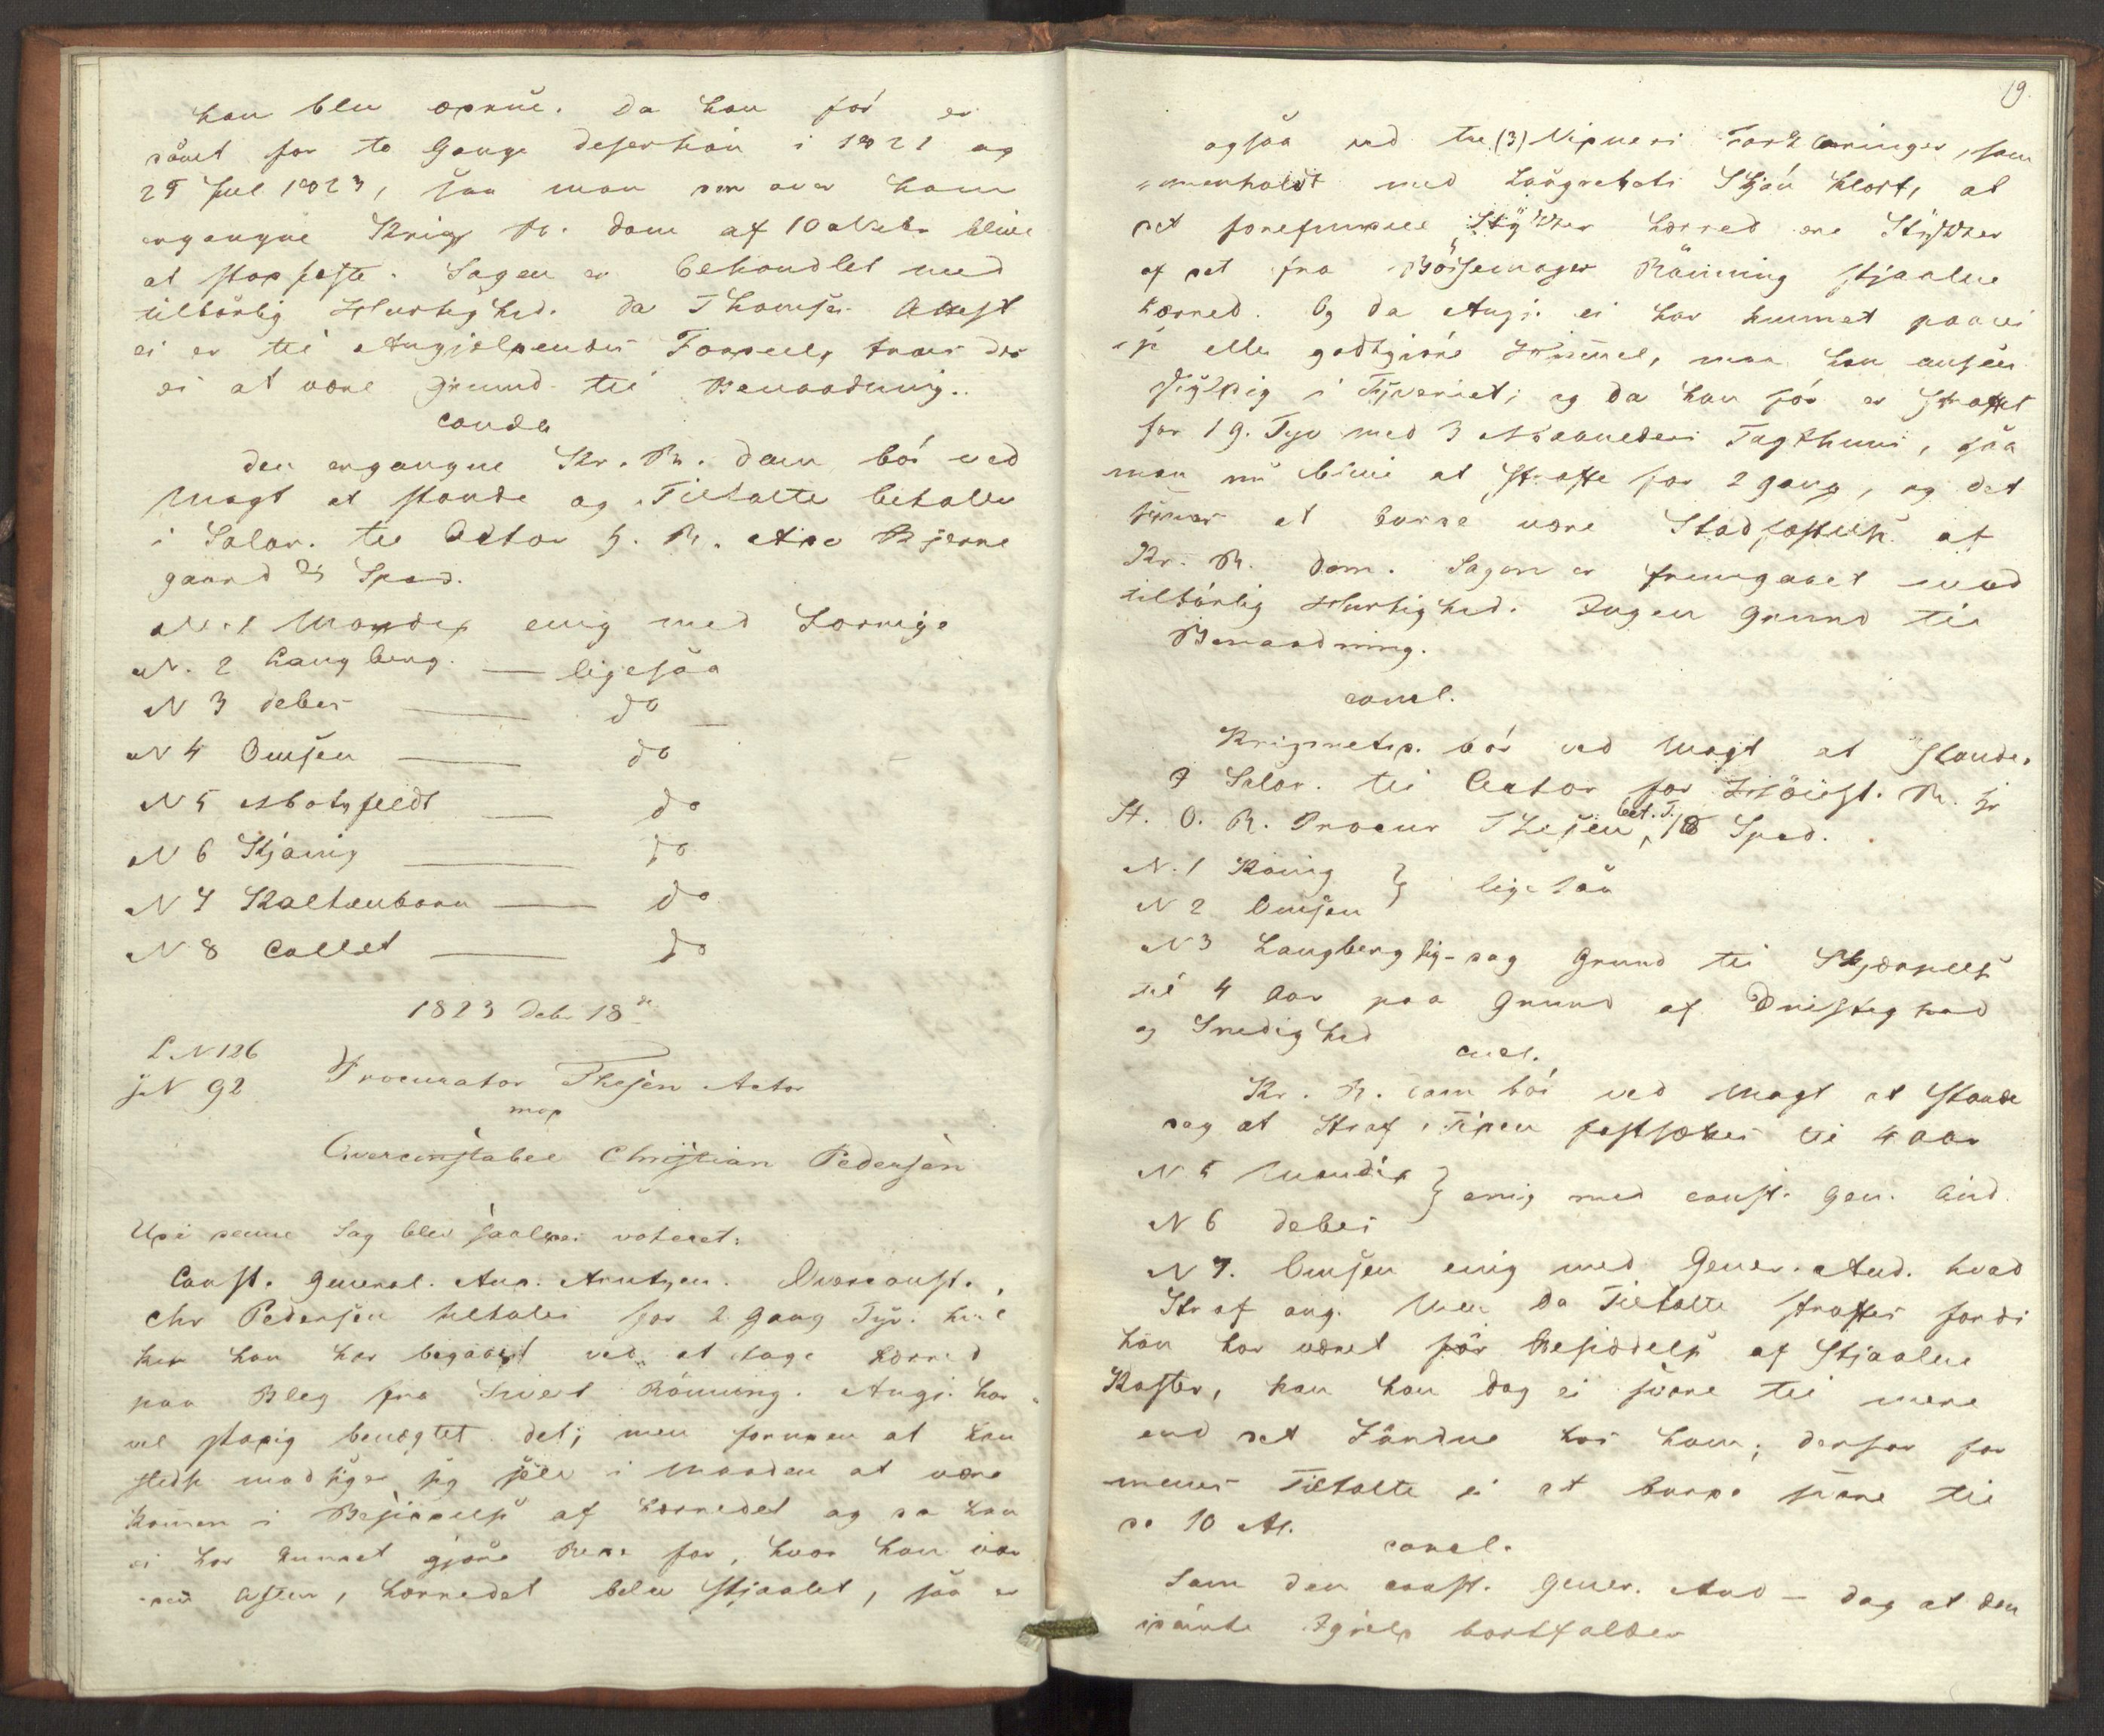 han blev . Da han før er
dømt for to Gange Desertion i 1821 og
29 Jul 1823, saa maa den over ham
ergangne Krigs R. Dom af 10 Octbr blive
at stadfeste. Sagen er behandlet med
tilbørlig Hurtighed. Da Thomsens Attest
ei er til Angjeldendes Fordeel, troes der
ei at være Grund til Benaadning.
concl
Den ergangne Kr. R. Dom bør ved
Magt at stande og Tiltalte betaler
i Salar. til Actor H. R. Adv Bjerre
gaard Spd.
N. 1 Mandix enig med Forrige
N. 2 Langberg. — ligesaa
N 3 Debes — do —
N 4 Omsen — do
N 5 Motzfeldt — do
N 6 — do
N 7 Kaltenborn — do
N 8 Collet — do
1823 Debr 18de
L. N 126
jN 92
Procurator Thesen Actor
mod
Overconstabel Christian Pedersen
Udi denne Sag blev saaledes voteret:
Const. General. Aud. Arntzen. Overconst.
Chr Pedersen tiltales for 2 Gang Tyv. hvil
ken han har begaaet ved at tage Lærred
paa Bleg fra Sivert Rönning. Angj. har
vel stadig benægtet det; men formeden at han
stedse modsiger sig selv i Maaden at være
kommen i Besiddelse af Lærredet og da han
ei har kunnet gjøre Rede for, hvor han var
den Aften, Lærredet blev stjaalet, saa er
19.
ogsaa ved tre (3) Vidners Forklaringer, som
sammenholdt med Laugrettets Skjøn klart, at
det forefundne Stykker Lærred ere Stykker
af det fra Bössemager Rönning stjaalne
Lærred. Og da Angj. ei har kunnet paavise
eller godtgiöre Hiemmel, maa han ansees
skyldig i Tyveriet; og da han før er Straffet
for 1 G. Tyv med 3 Maaneders Tugthuus, saa
maa nu blive at straffe for 2 Gang, og det
synes at burde være Stadfæstelse af
Kr. R. Dom. Sagen er fremgaaet med
tilbørlig Hurtighed. Ingen Grund til
Benaadning.
concl.
Krigsretsd. bør ved Magt at stande.
I Salar. til Actor for Höiest. R. Hr
St. O. R. Procur Thesen, bet. T. 18 Spd.
N. 1 König } ligesaa
N 2 Omsen
N 3 Langberg lig - dog Grund til Skjærpelse
til 4 Aar paa Grund af Dristighed
og Snedighed
concl.
Kr. R. Dom bør ved Magt at stande
dog at Straf Tiden fastsættes til 4 Aar
N 5 Mandix } enig med const. Gen. Aud.
N 6 Debes
N 7. Omsen enig med Gener. Aud. hvad
Straf ang. Men da Tiltalte straffes fordi
han har været for Besiddelse af stjaalne
Koster, kan han dog ei svare til mere
end det Fundne hos ham; derfor for
menes Tiltalte ei at burde svare til
de 10 Al.
concl.
Som den const. Gener. Aud — dog at den
idömte Igield bortfalder